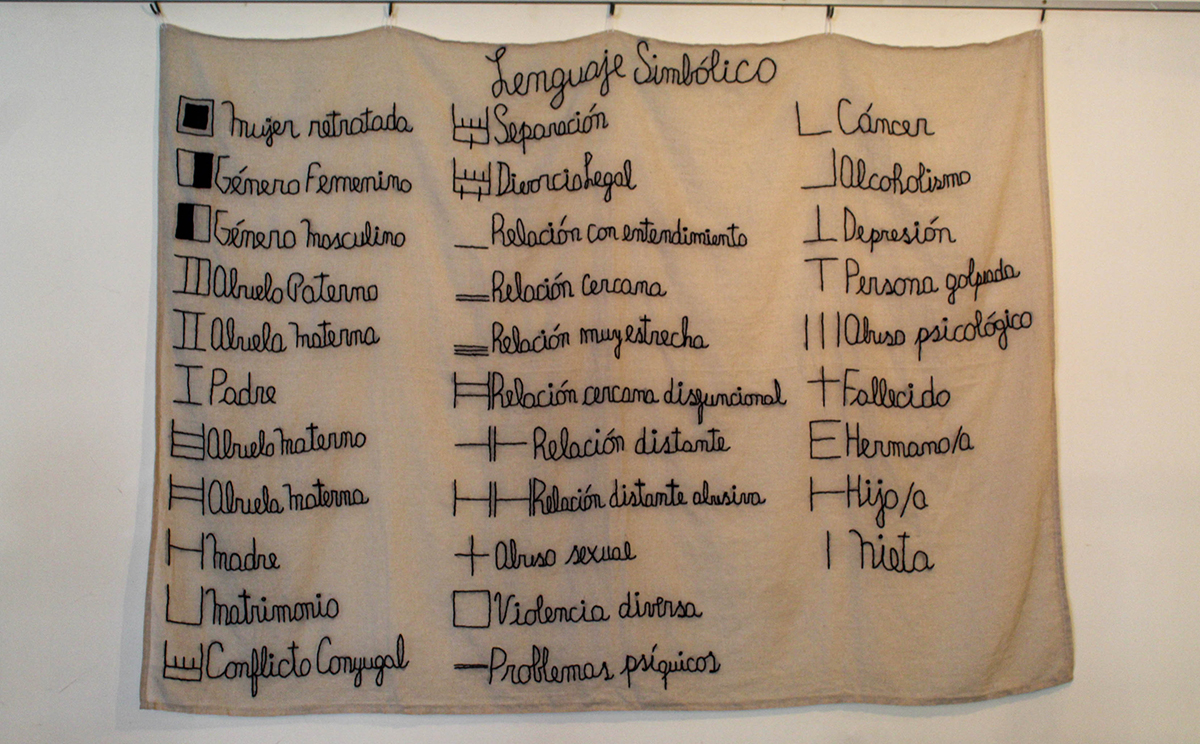 Lenguaje Simbólico
Mujer retratada
Género Femenino
Género Masculino
Abuelo Paterno
Abuela Materna
Padre
Abuelo Materno
Abuela Materna
Madre
Matrimonio
Conflicto Conyugal
Separación
Divorcio Legal
Relación con entendimiento
Relación cercana
Relación muy estrecha
Relación cercana disfuncional
Relación distante
Relación distante abusiva
Abuso sexual
Violencia diversa
Problemas psíquicos
Cáncer
Alcoholismo
Depresión
Persona golpeada
Abuso psicológico
Fallecido
Hermano/a
Hijo/a
Nieta